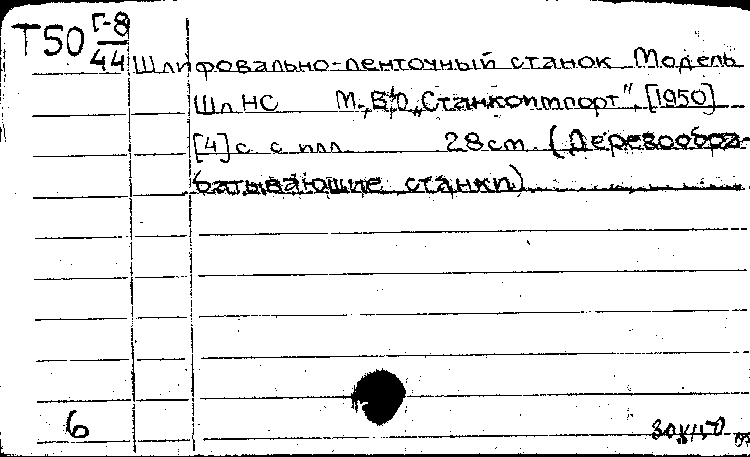 Т50 Г-8
44
Шлифовально-ленточный станок Модель
ШлНС М., В/О „Станкоимпорт", [1950]
[4] с. с илл. 28 cm. (Деревообра-
батывающие станки)
6